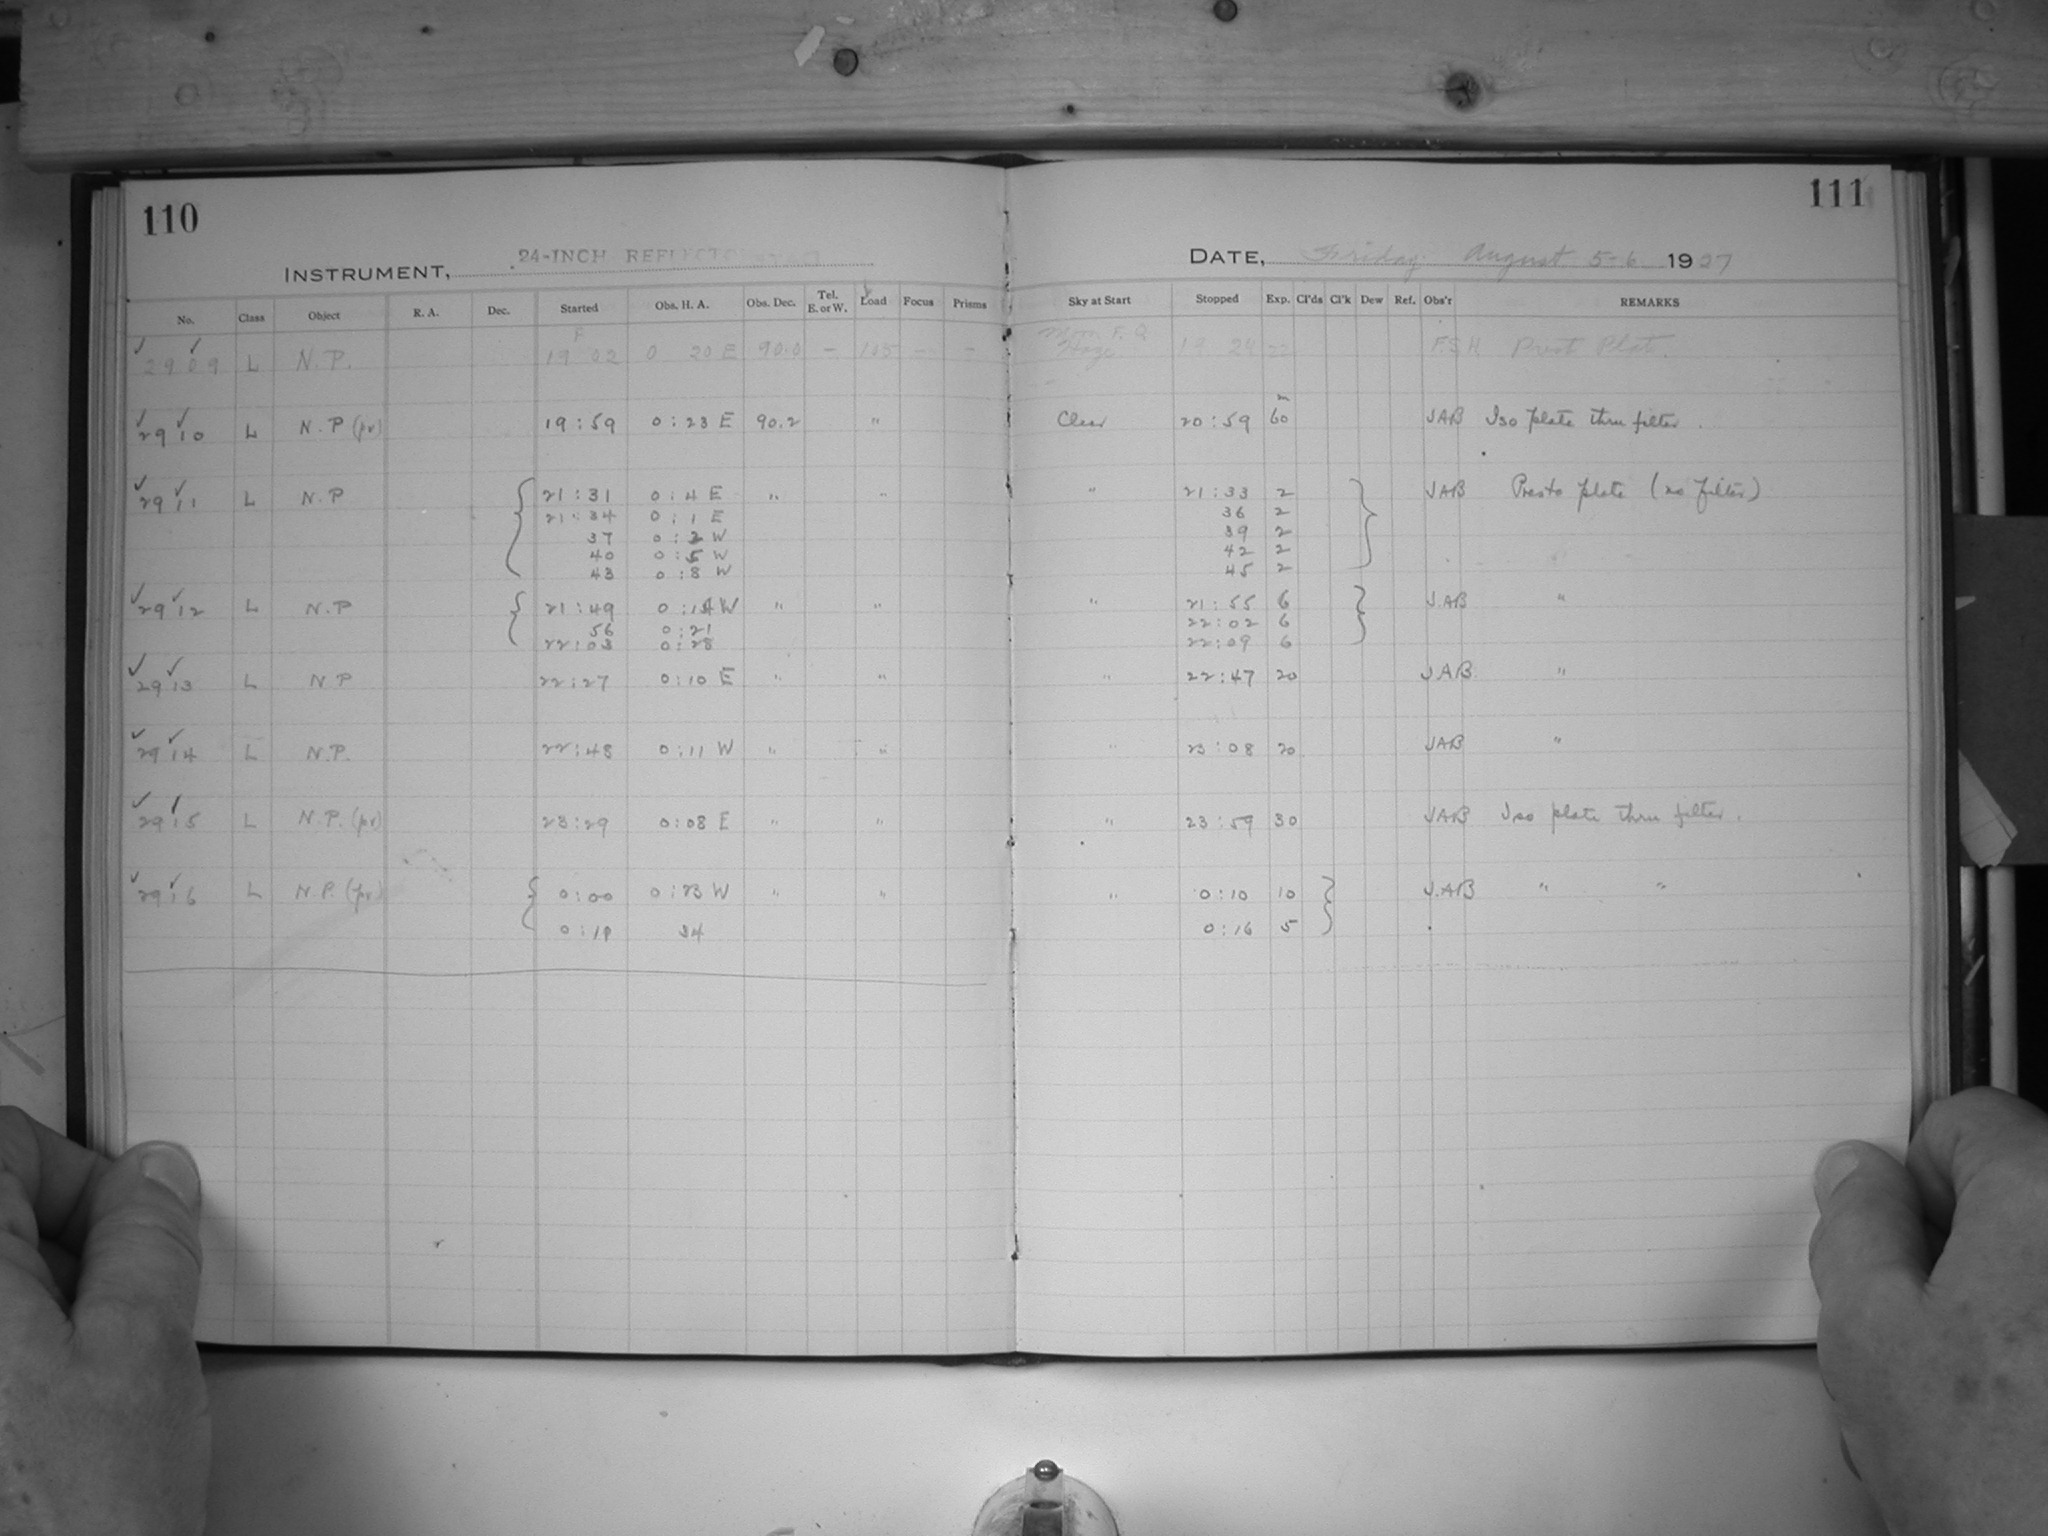 110
111
INSTRUMENT, 24-INCH REFLECTOR
DATE, Friday August 5-6 1927
No. Class Object R. A. Dec. Started Obs. H. A. Obs. Dec. Tel. E. or W. Load Focus Prisms Sky at Start Stopped Exp. Cl'ds Cl'k Dew Ref. Obs'r REMARKS
2909 L N.P. 19 02 0 20 E 90.0 – – – Haze 19 24 22 FSH Prest Plate.
2910 L N.P (pv) 19:59 0:23 E 90.2 " Clear 20:59 60 m JAB Iso plate thru filter.
2911 L N.P { 21:31 0:4 E " " " 21:33 2 } JAB Presto plate (no filter)
21:34 0:1 E 36 2
37 0:2 W 39 2
40 0:5 W 42 2
43 0:8 W 45 2
2912 L N.P { 21:49 0:14 W " " " 21:55 6 } J.AB "
56 0:21 22:02 6
22:03 0:28 22:09 6
2913 L N P 22:27 0:10 E " " " 22:47 20 J.AB. "
2914 L N.P. 22:48 0:11 W " " " 23:08 20 JAB "
2915 L N.P. (pv) 23:29 0:08 E " " " 23:59 30 JAB Iso plate thru filter.
2916 L N.P. (pv) { 0:00 0:23 W " " " 0:10 10 } J.AB " "
34 0:16 5